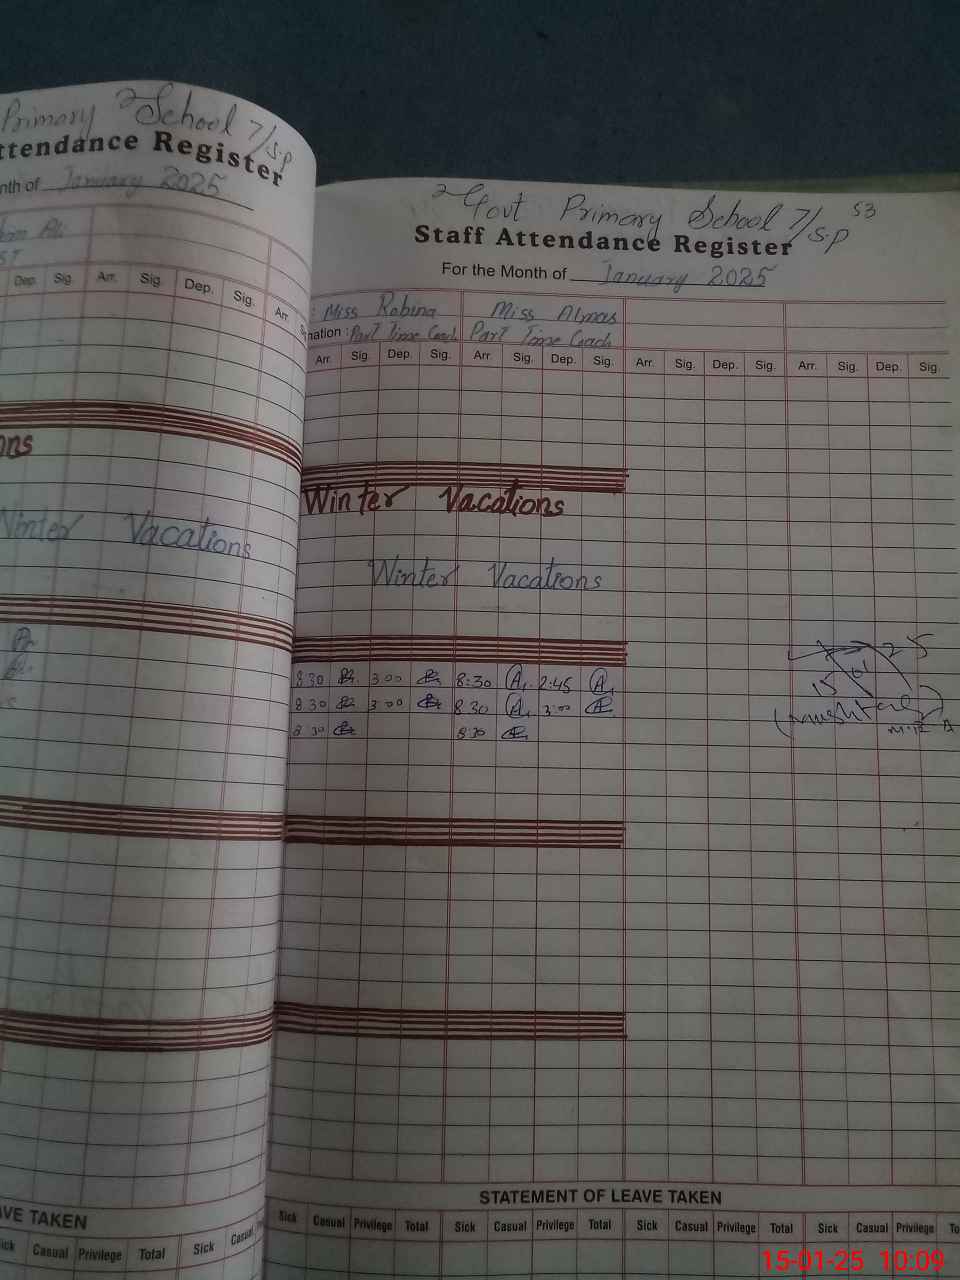 Primary School 7/S.P
ttendance Register
nth of January 2025
Dep. Sig. Arr. Sig. Dep. Sig. Arr.
ns
Winter Vacations
AVE TAKEN
Sick Casual Privilege Total Sick Casual
53
Govt Primary School 7/S.P
Staff Attendance Register
For the Month of January 2025
: Miss Robina Miss Almas
nation : Part Time Coach Part Time Coach
Arr. Sig. Dep. Sig. Arr. Sig. Dep. Sig. Arr. Sig. Dep. Sig. Arr. Sig. Dep. Sig.
Winter Vacations
Winter Vacations
8:30 3:00 8:30 2:45
8:30 3:00 8:30 3:00
8:30 8:30
15 01 25
STATEMENT OF LEAVE TAKEN
Sick Casual Privilege Total Sick Casual Privilege Total Sick Casual Privilege Total Sick Casual Privilege To
15-01-25 10:09